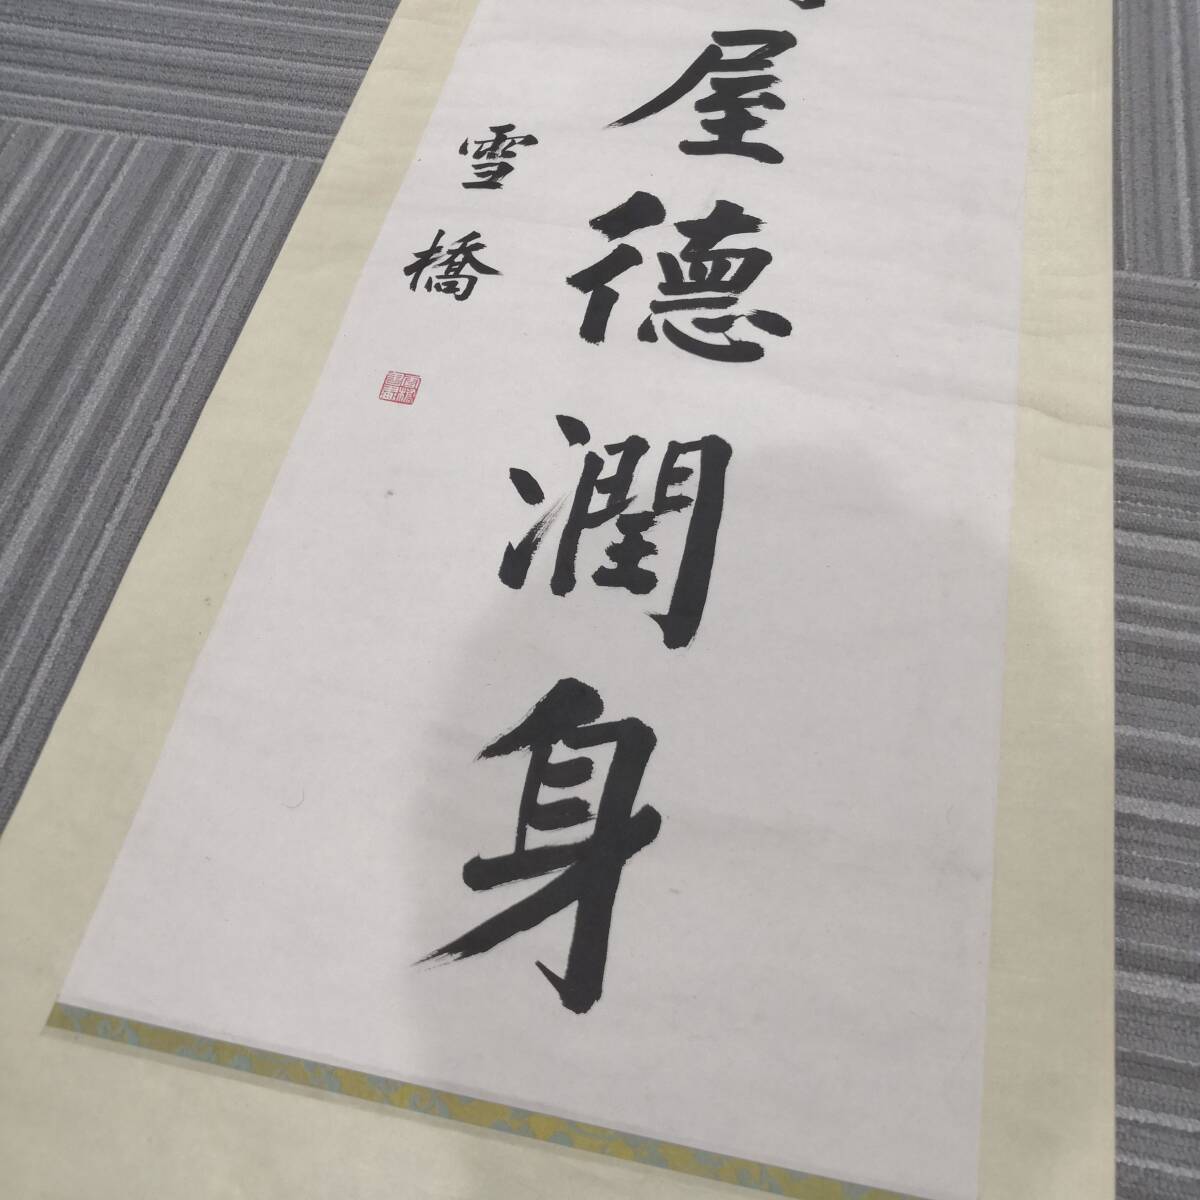 屋德潤身
雪橋